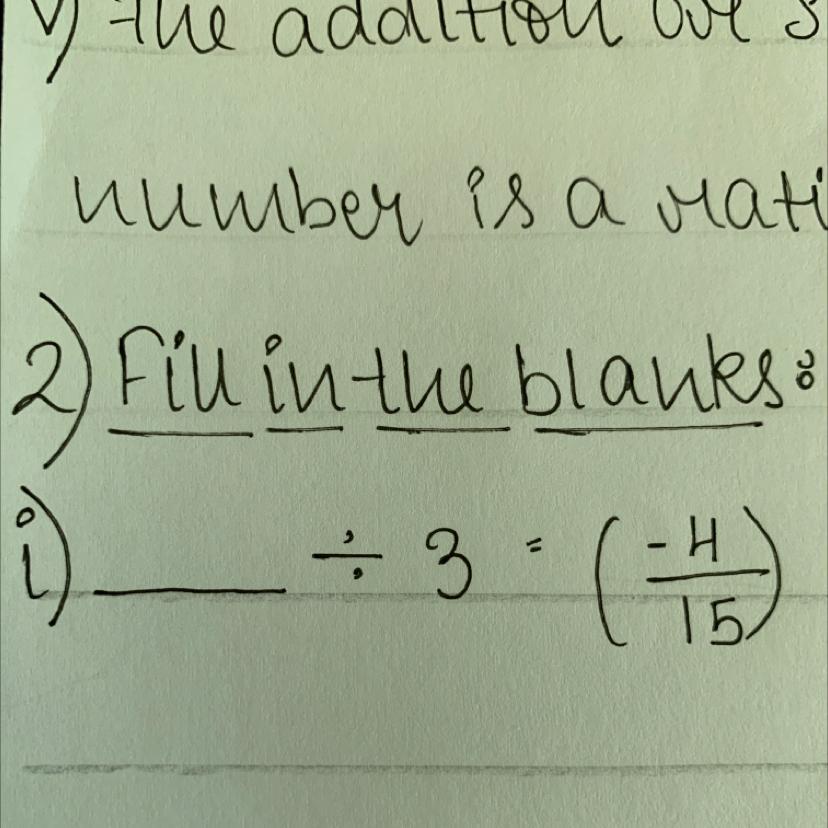 v) the addition
number is a rati
2) Fill in the blanks:
i) ______ ÷ 3 = (-4/15)